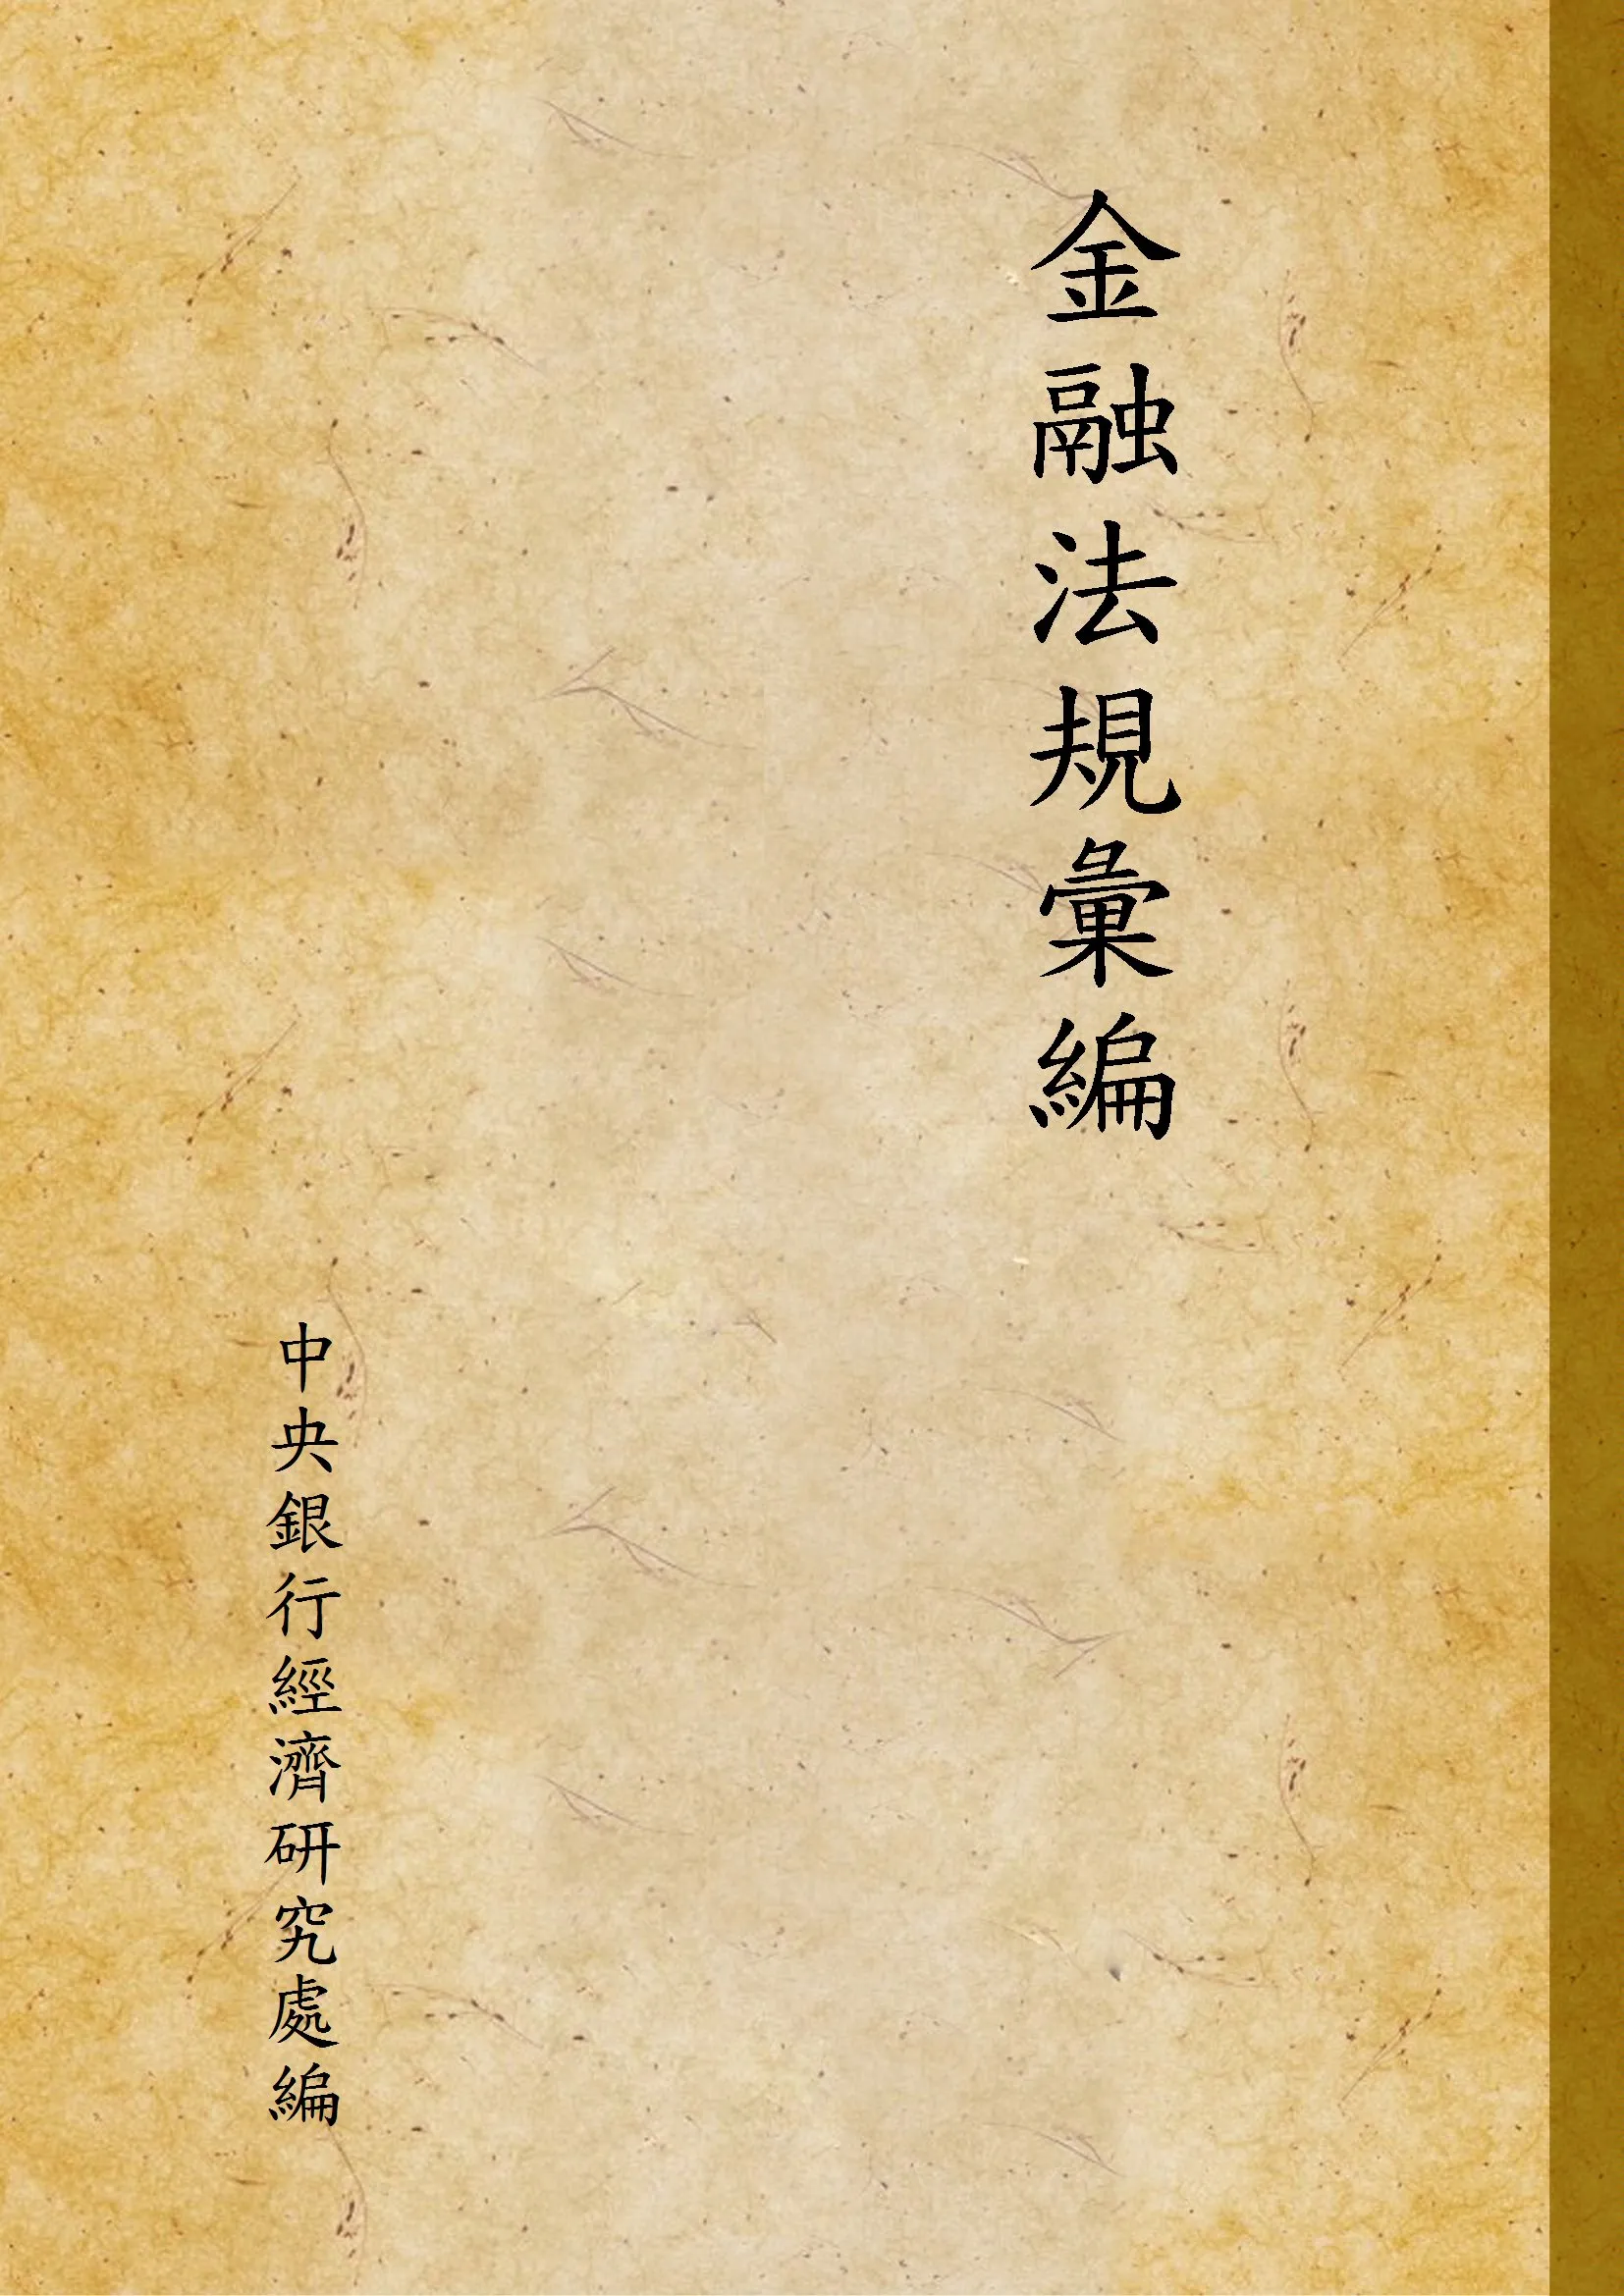 金融法規彙編
中央銀行經濟研究處編